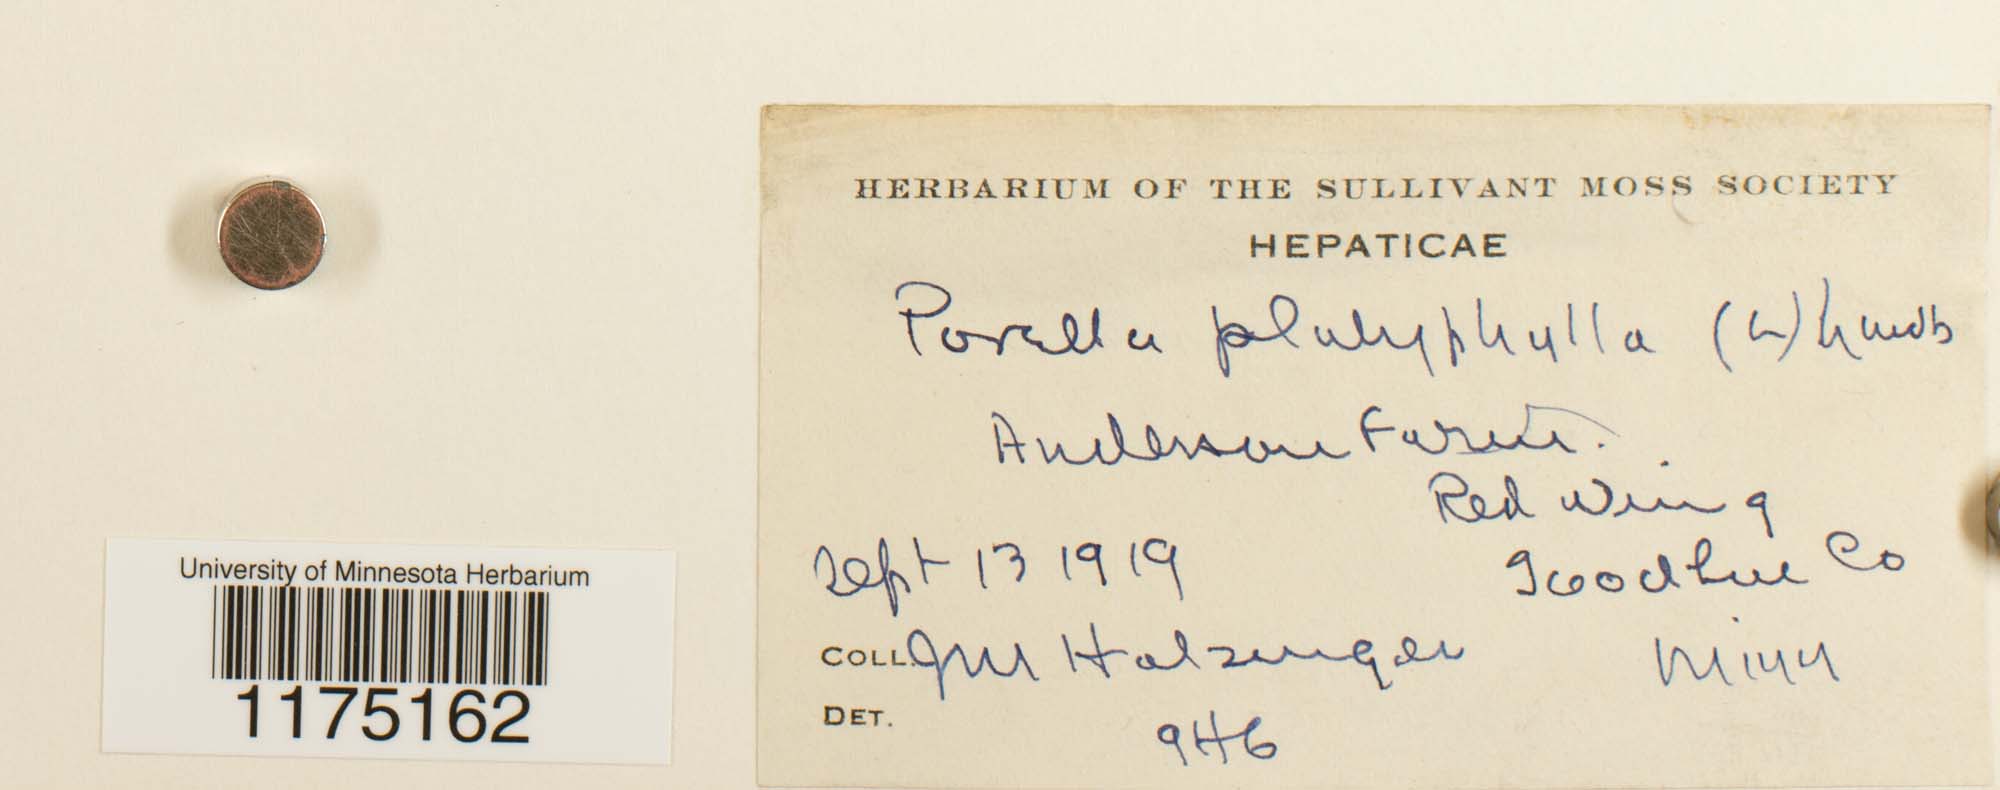 HERBARIUM OF THE SULLIVANT MOSS SOCIETY
HEPATICAE
Porella platyphylla (L) Lindb
Anderson
Red Wing
Sept 13 1919
Goodhue Co
COLL. JM Holzinger
Minn
DET.
University of Minnesota Herbarium
1175162